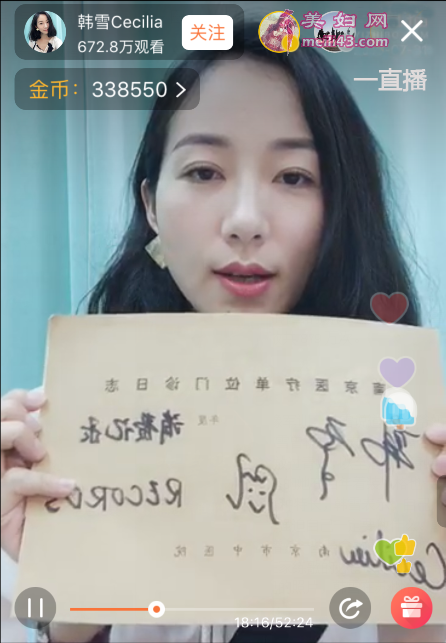 韩雪Cecilia
672.8万观看
关注
美妇网
meifu43.com
金币: 338550
一直播
南京医疗单位门诊日志
年度
消费记录
韩雪
RECORDS
Cecilia
南京市中医院
18:16/52:24